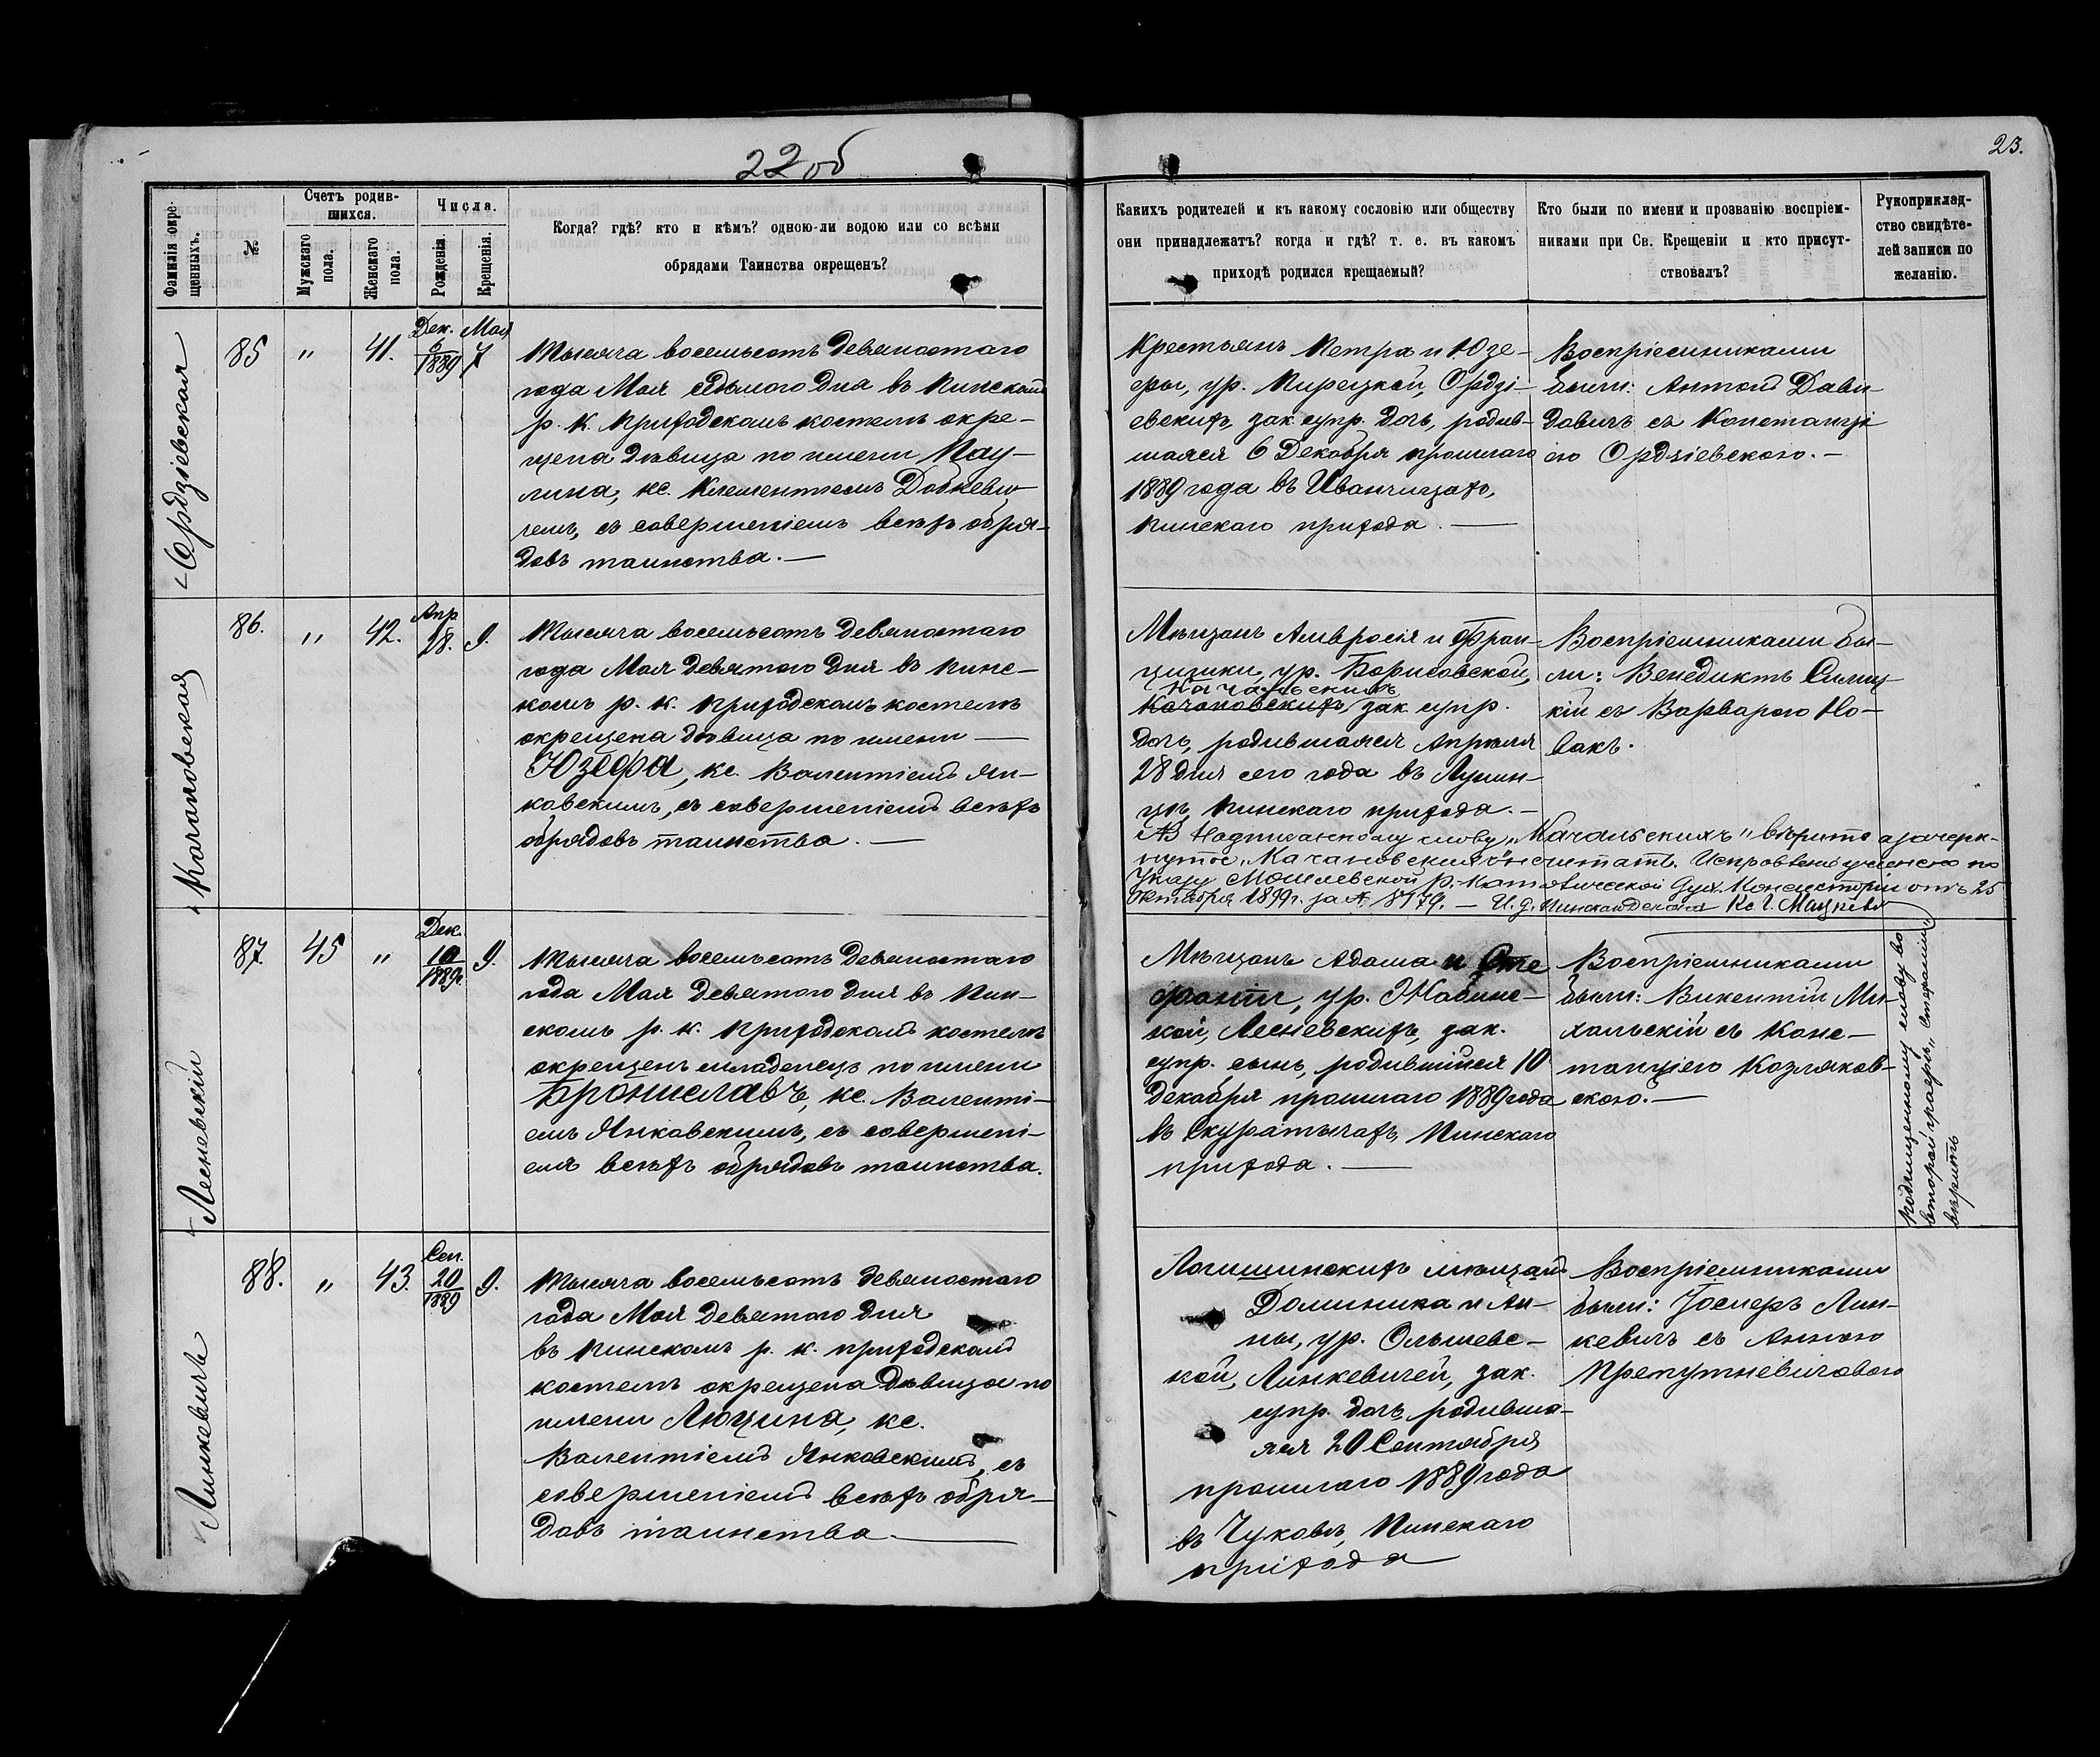 22 об
23.
Фамилія окре-
щенныхъ.
№
Счетъ родив-
шихся.
Мужскаго
пола.
Женскаго
пола.
Числа.
Рожденія.
Крещенія.
Когда? гдѣ? кто и кѣмъ? одною-ли водою или со всѣми
обрядами Таинства окрещенъ?
Какихъ родителей и къ какому сословію или обществу
они принадлежатъ? когда и гдѣ? т. е. въ какомъ
приходѣ родился крещаемый?
Кто были по имени и прозванію воспріем-
никами при Св. Крещеніи и кто присут-
ствовалъ?
Рукоприклад-
ство свидѣте-
лей записи по
желанію.
Ордзіевская
85
"
41.
Дек.
6
1889
Мая
7
Тысяча восемьсотъ девяностаго
года Мая седьмого дня въ Пинскомъ
р. к. приходскомъ костелѣ окре-
щена дѣвица по имени Пау-
лина, кс. Климентіемъ Добкеви-
чемъ, съ совершеніемъ всѣхъ обря-
довъ таинства. —
Крестьянъ Петра и Юзе-
фы, ур. Пирецкой, Ордзі-
евскихъ, зак. супр. дочь, родив-
шаяся 6 Декабря прошлаго
1889 года въ Иванчицахъ,
Пинскаго прихода. —
Воспріемниками
были: Антонъ Дави-
довичъ съ Констанці
ею Ордзіевскою. —
Качановская
86.
"
42.
Апр
28.
9.
Тысяча восемьсотъ девяностаго
года Мая девятого дня въ Пинс-
комъ р. к. приходскомъ костелѣ
окрещена дѣвица по имени —
Юзефа, кс. Валентіемъ Ян-
ковскимъ, съ совершеніемъ всѣхъ
обрядовъ таинства. —
Мѣщанъ Амвросія и Фран-
цишки, ур. Борисовской,
Качальскихъ
Качановскихъ, зак. супр.
дочь, родившаяся Апрѣля
28 дня сего года въ Лунин-
цѣ, Пинскаго прихода. —
Воспріемниками бы-
ли: Венедиктъ Силиц
кій съ Варварою Но-
вакъ.
Надписанному слову „Качальскихъ" вѣрить а зачерк-
нутое „Качановскихъ" не считать. Исправленіе учинено по
Указу Могилевской Р.-Католической Дух. Консисторіи отъ 25
Октября 1899 г. за № 8179. — И. д. Пинскаго Декана Кс.
Лесневскій
87.
45
"
Дек.
10
1889г.
9.
Тысяча восемьсотъ девяностаго
года Мая девятого дня въ Пин-
скомъ р. к. приходскомъ костелѣ
окрещенъ младенецъ по имени
Брониславъ, кс. Валенті-
емъ Янковскимъ, съ совершені-
емъ всѣхъ обрядовъ таинства.
Мѣщанъ Адама и Сте
фаніи, ур. Жабинс-
кой, Лесневскихъ, зак.
супр. сынъ, родившійся 10
Декабря прошлаго 1889 года
въ Скуратычахъ, Пинскаго
прихода. —
Воспріемниками
были: Викентій Ми-
хальскій съ Конс-
танціею Козляков-
скою. —
Подчищенному слову во
второй графѣ „Стефаніи"
вѣрить
Линкевичъ
88.
"
43.
Сен.
20
1889
9.
Тысяча восемьсотъ девяностаго
года Мая девятого дня
въ Пинскомъ р. к. приходскомъ
костелѣ окрещена дѣвица по
имени Люцина, кс.
Валентіемъ Янковскимъ, съ
совершеніемъ всѣхъ обря-
довъ таинства —
Логишинскихъ мѣщанъ
Доминика и Ан-
ны, ур. Ольшевс-
кой, Линкевичей, зак.
супр. дочь, родивша-
яся 20 Сентября
прошлаго 1889 года
въ Чуховѣ, Пинскаго
прихода
Воспріемниками
были: Іосифъ Лин-
кевичъ съ Анною
Претутневичовою